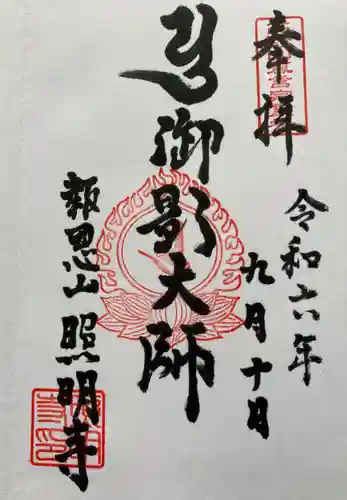 奉拝
令和六年
九月十日
御影大師
報恩山 照明寺